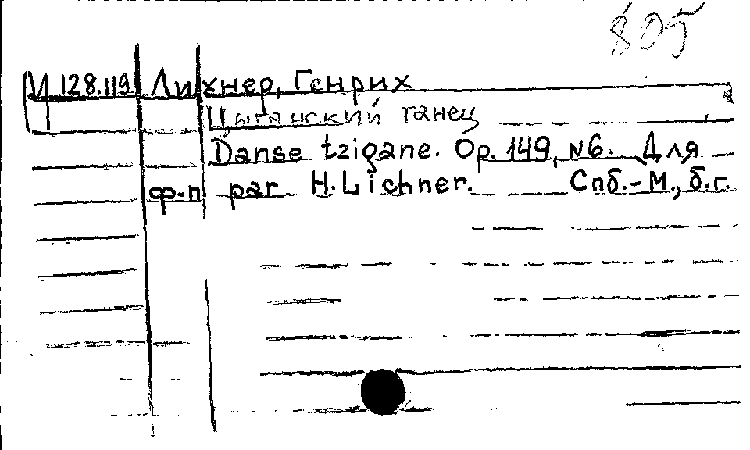 805
М 128.119 Лихнер, Генрих
Цыганский танец
Danse tzigane. Op. 149, №6. Для
ф-п par H. Lichner. Спб.-М., б.г.